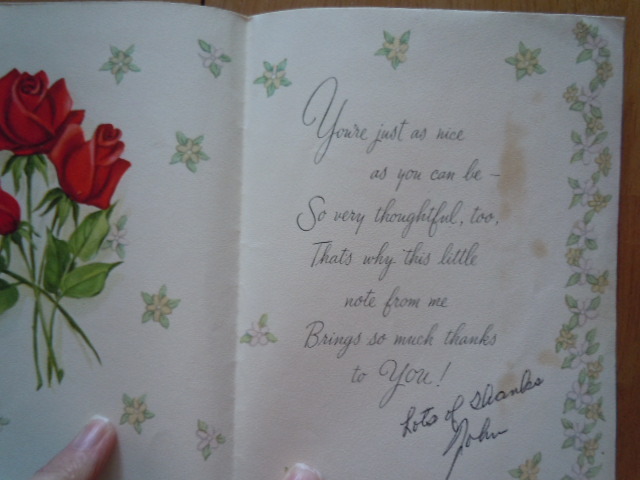 You're just as nice
as you can be -
So very thoughtful, too,
That's why this little
note from me
Brings so much thanks
to You!
Lots of thanks
John